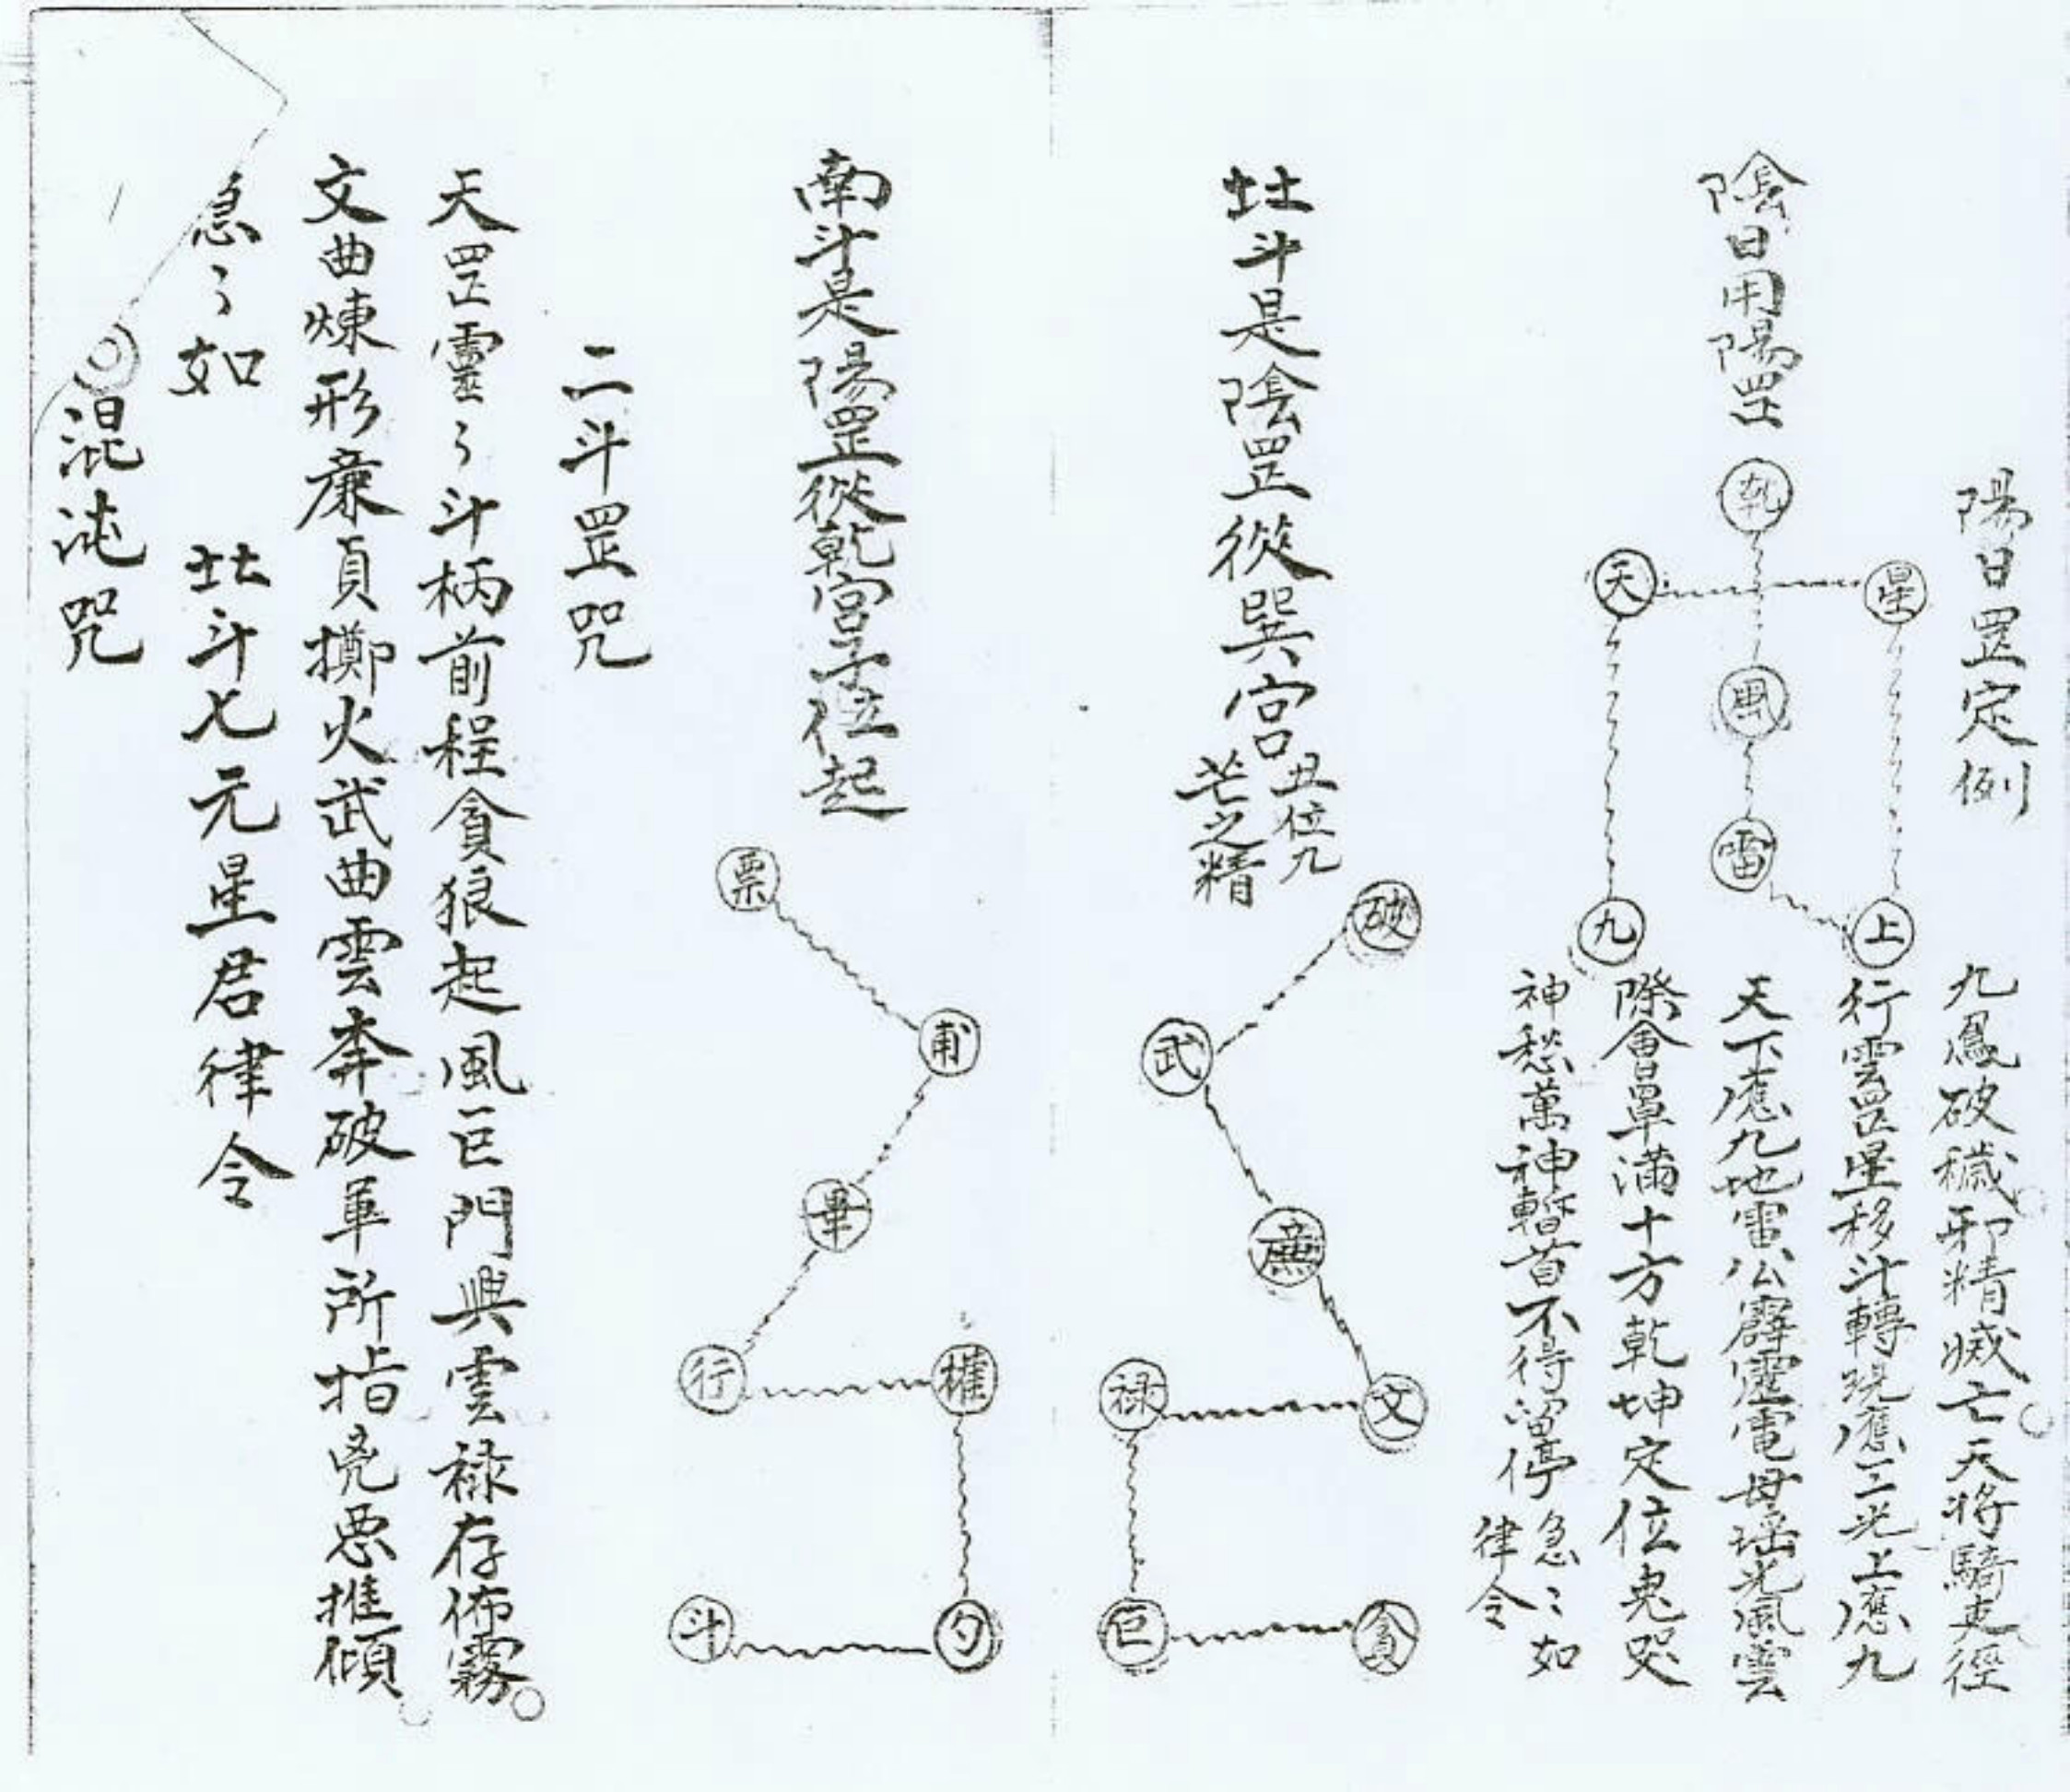 陽日罡定例
九鳳破穢邪精滅亡天將騎吏徑
行雲罡星移斗轉現應三光上應九
天下應九地雷公霹靂電母瑶光風雲
際會罩滿十方乾坤定位鬼哭
神愁萬神暫首不得留停急〻如
律令
陰日用陽罡
星
天
風
雷
上
九
北斗是陰罡從巽宮丑位九
芒之精
破
武
廉
文
祿
巨
貪
南斗是陽罡從乾宮子位起
票
甫
畢
行
權
勺
斗
二斗罡咒
天罡靈〻斗柄前程貪狼起風巨門興雲祿存佈霧
文曲煉形廉貞擲火武曲雲奔破軍所指兇惡摧傾
急〻如 北斗七元星君律令
混沌咒